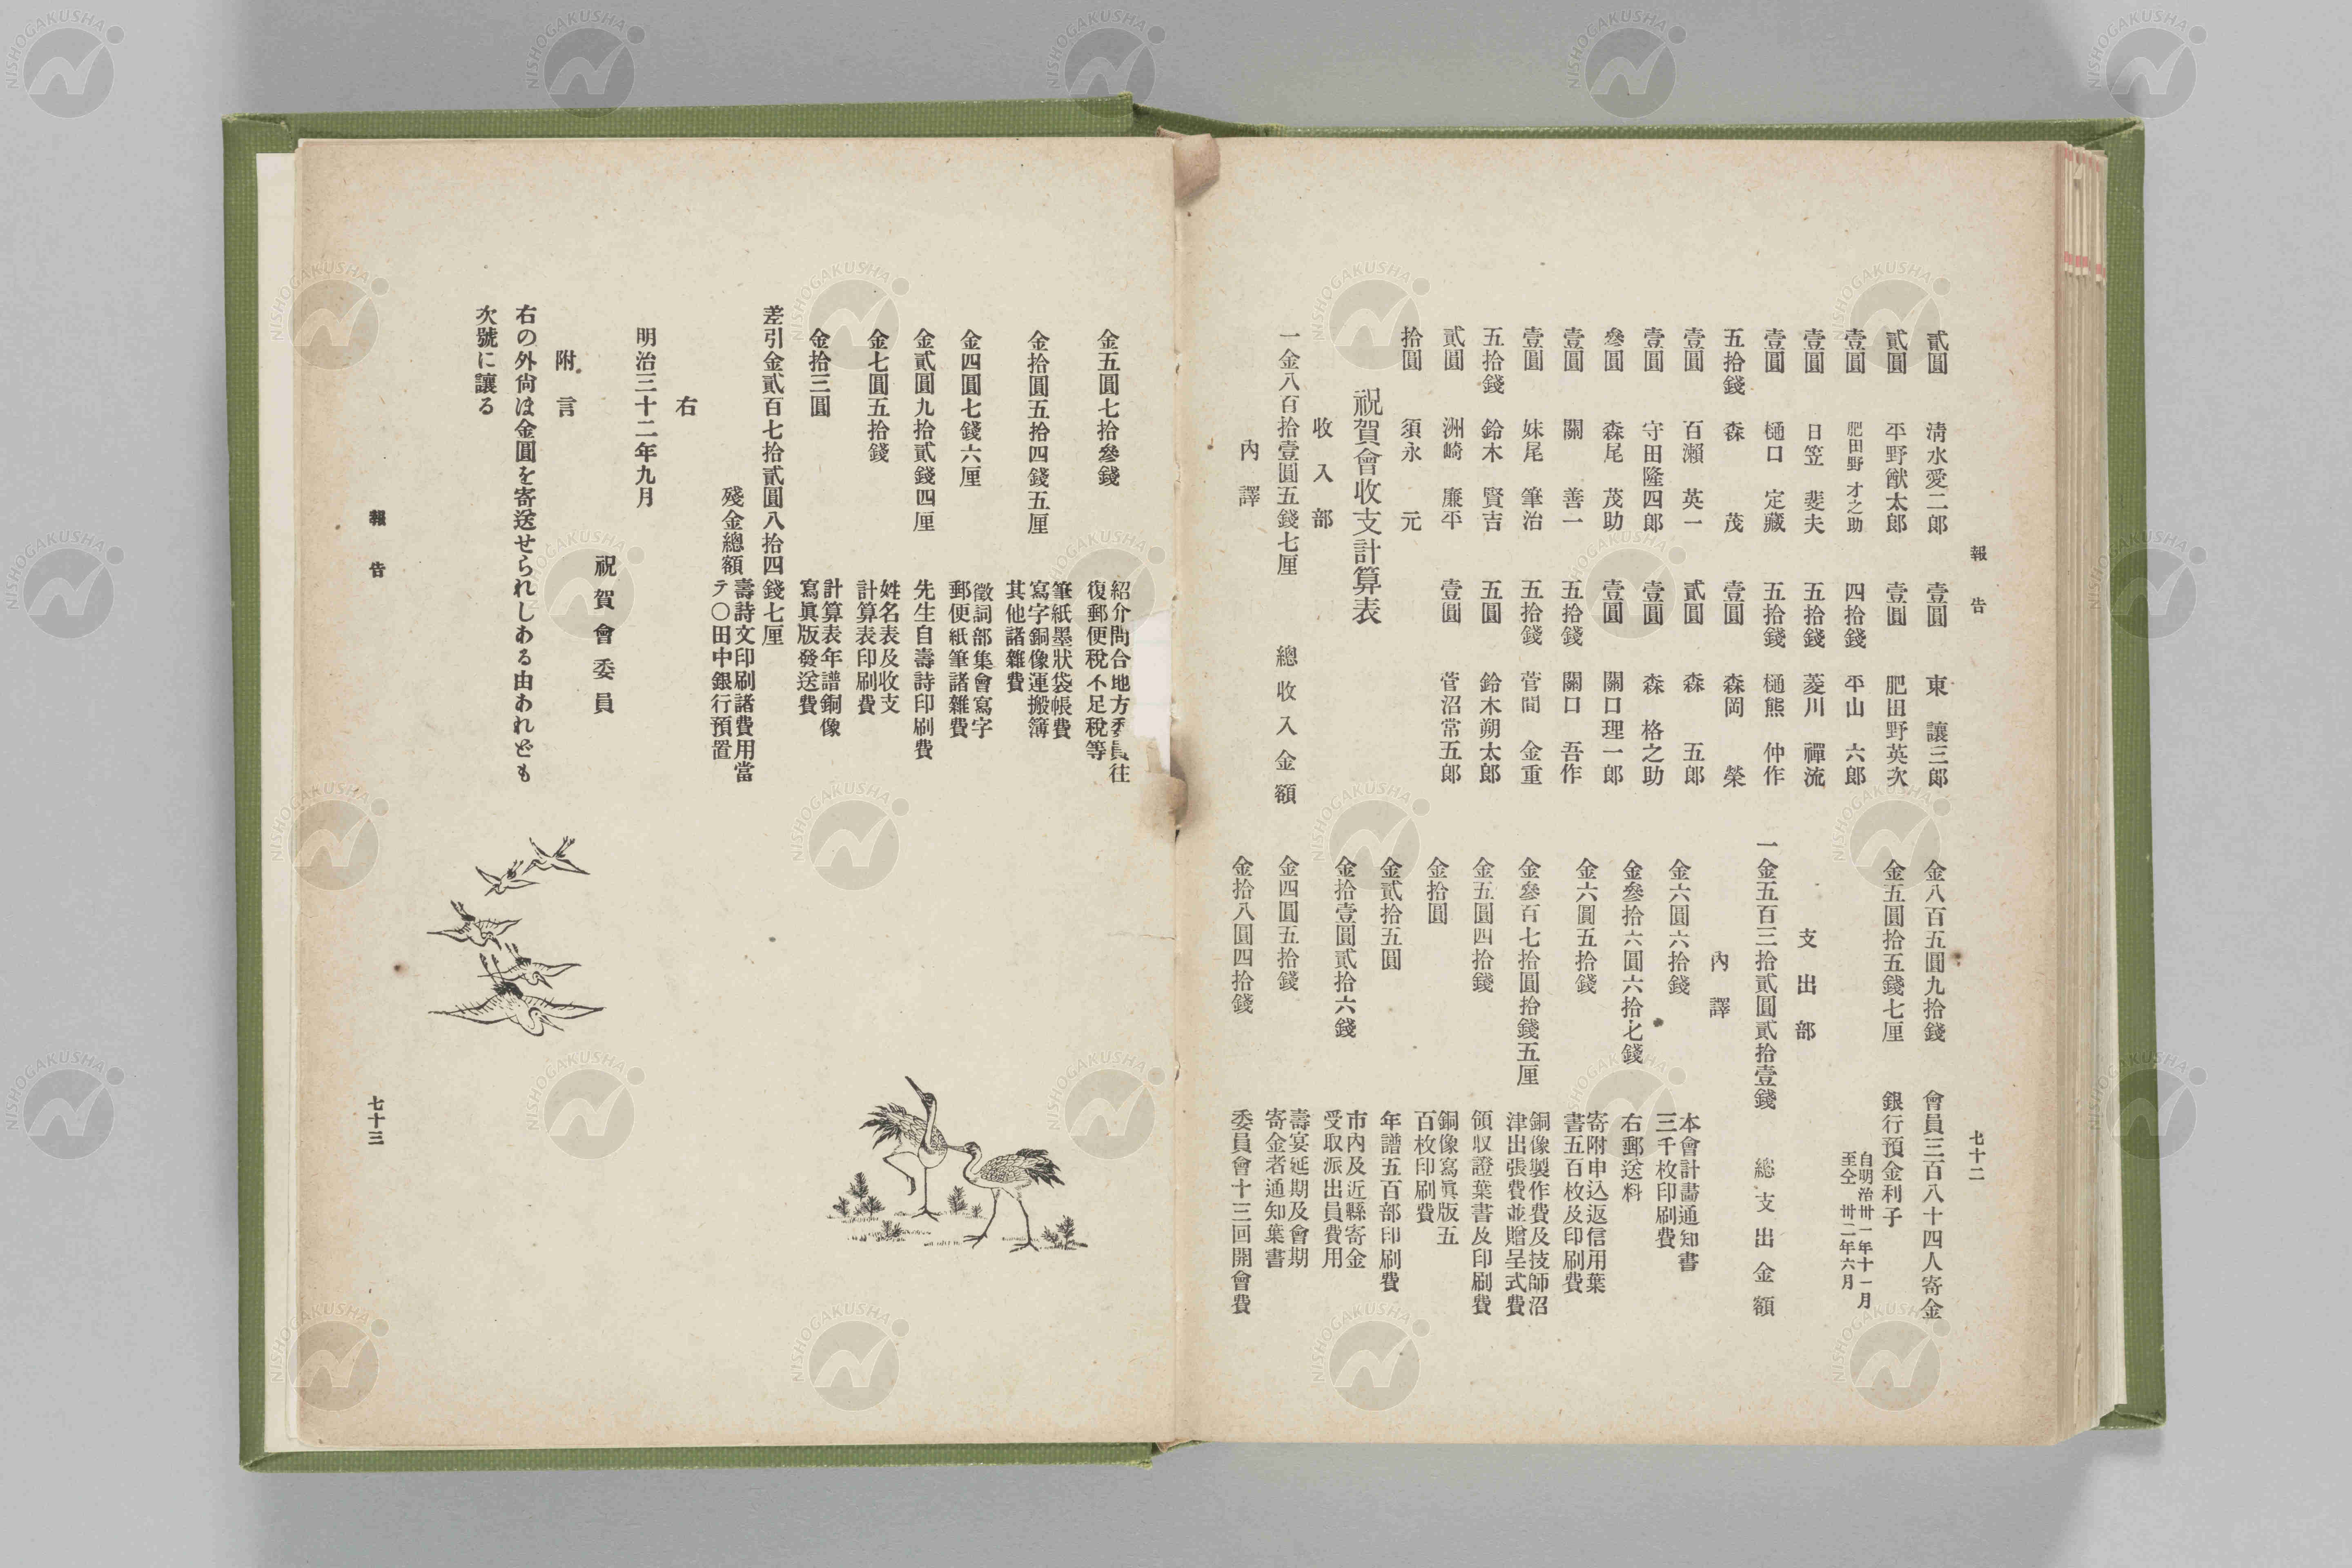 報告
七十二
貳圓 淸水愛二郎 壹圓 東讓三郎
貳圓 平野猷太郎 壹圓 肥田野英次
壹圓 肥田野才之助 四拾錢 平山六郎
壹圓 日笠斐夫 五拾錢 菱川禪流
壹圓 樋口定藏 五拾錢 樋熊仲作
五拾錢 森茂 壹圓 森岡榮
壹圓 百瀨英一 貳圓 森五郎
壹圓 守田隆四郎 壹圓 森格之助
參圓 森尾茂助 壹圓 關口理一郎
壹圓 關善一 五拾錢 關口吾作
壹圓 妹尾筆治 五拾錢 菅間金重
五拾錢 鈴木賢吉 五圓 鈴木朔太郎
貳圓 洲崎廉平 壹圓 菅沼常五郎
拾圓 須永元
祝賀會收支計算表
收入部
一金八百拾壹圓五錢七厘 總收入金額
內譯
金八百五圓九拾錢 會員三百八十四人寄金
金五圓拾五錢七厘 銀行預金利子
自明治卅一年十一月
至仝卅二年六月
支出部
一金五百三拾貳圓貳拾壹錢 總支出金額
內譯
金六圓六拾錢 本會計畵通知書
三千枚印刷費
金參拾六圓六拾七錢 右郵送料
金六圓五拾錢 寄附申込返信用葉
書五百枚及印刷費
金參百七拾圓拾錢五厘 銅像製作費及技師沼
津出張費並贈呈式費
金五圓四拾錢 領収證葉書及印刷費
金拾圓 銅像寫眞版五
百枚印刷費
金貳拾五圓 年譜五百部印刷費
金拾壹圓貳拾六錢 市內及近縣寄金
受取派出員費用
金四圓五拾錢 壽宴延期及會期
寄金者通知葉書
金拾八圓四拾錢 委員會十三回開會費
金五圓七拾參錢 紹介問合地方委員往
復郵便稅不足稅等
金拾圓五拾四錢五厘 筆紙墨狀袋帳費
寫字銅像運搬簿
其他諸雜費
金四圓七錢六厘 徵詞部集會寫字
郵便紙筆諸雜費
金貳圓九拾貳錢四厘 先生自壽詩印刷費
金七圓五拾錢 姓名表及收支
計算表印刷費
金拾三圓 計算表年譜銅像
寫眞版發送費
差引金貳百七拾貳圓八拾四錢七厘
殘金總額 壽詩文印刷諸費用當
テ〇田中銀行預置
右
明治三十二年九月
祝賀會委員
附言
右の外尙ほ金圓を寄送せられしある由あれども
次號に讓る
報告
七十三
NISHOGAKUSHA